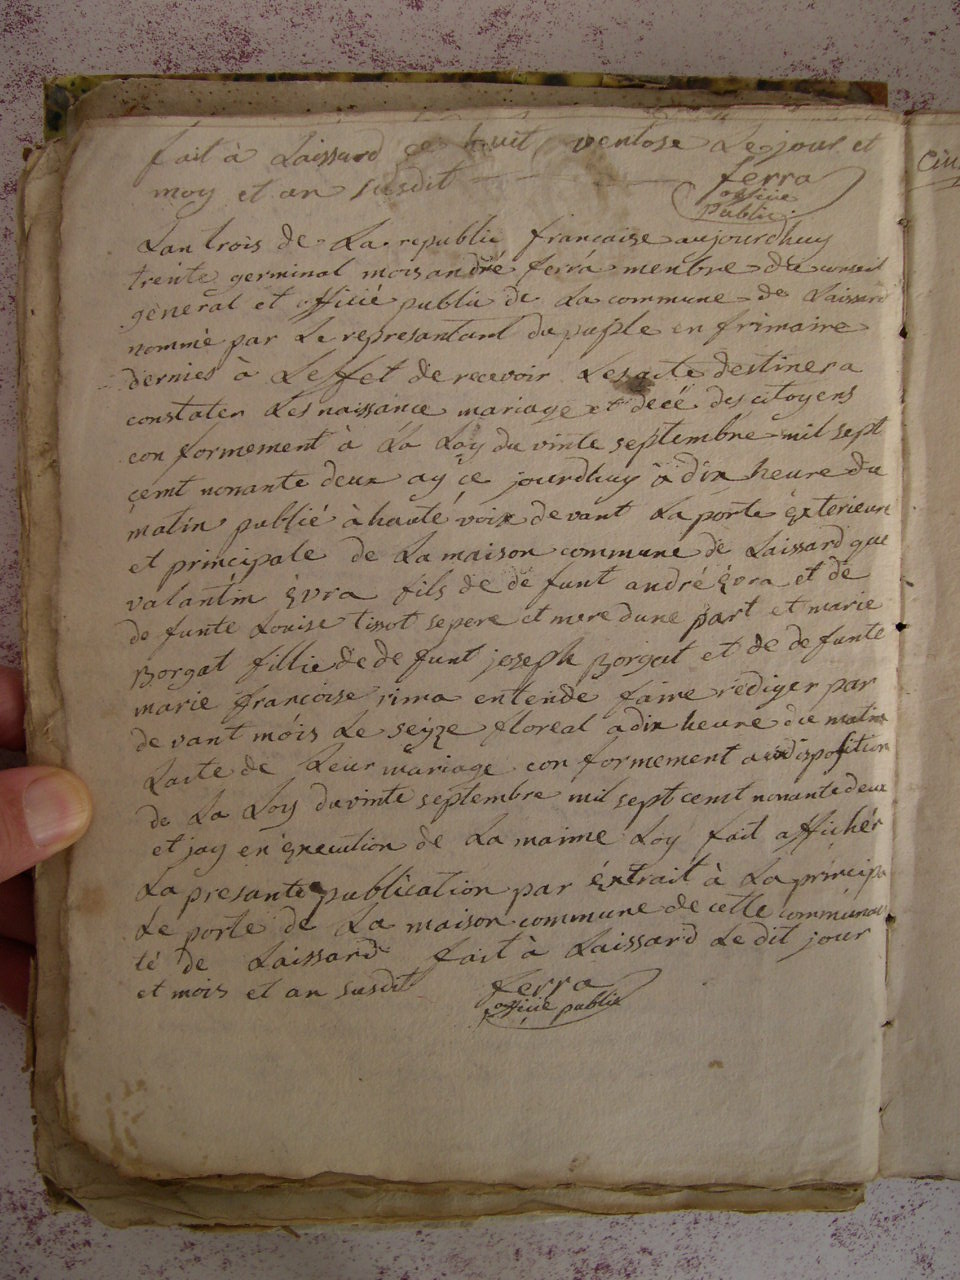 fait à Laissard ce huit ventose Le jour et
moy et an susdit ferra
officie
public
Lan trois de La republic francaise aujourdhuy
trente germinal mois andré ferra menbre du conseil
géneral et officié public de La commune de Laissard
nommé par Le represantant du peuple en frimaire
dernies à Leffet de recevoir Les acte destinera
constater Les naissance mariage et décé des citoyens
conformement à La Loy du vinte septembre mil sept
cemt nonante deux ay ce jourdhuy à dix heure du
matin publié à hauté voix devant La porte éxterieure
et principale de La maison commune de Laissard que
valantin Évra fils de defunt andré Évra et de
defunte Louise tissot se pere et mere dune part et marie
Borgat fillie de defunt joseph Borgat et de defunte
marie francoise rima entende faire rédiger par
devant móis Le seize floreal a dix heure du matin
Lacte de Leur mariage conformement aux disposition
de La Loy du vinte septembre mil sept cemt nonante deux
et jay en éxecution de La maime Loy fait affichér
La presante publication par éxtrait à La principa
Le porte de La maison commune de cette communau
té de Laissard fait à Laissard Le dit jour
et mois et an susdit ferra
officie public
Ciu